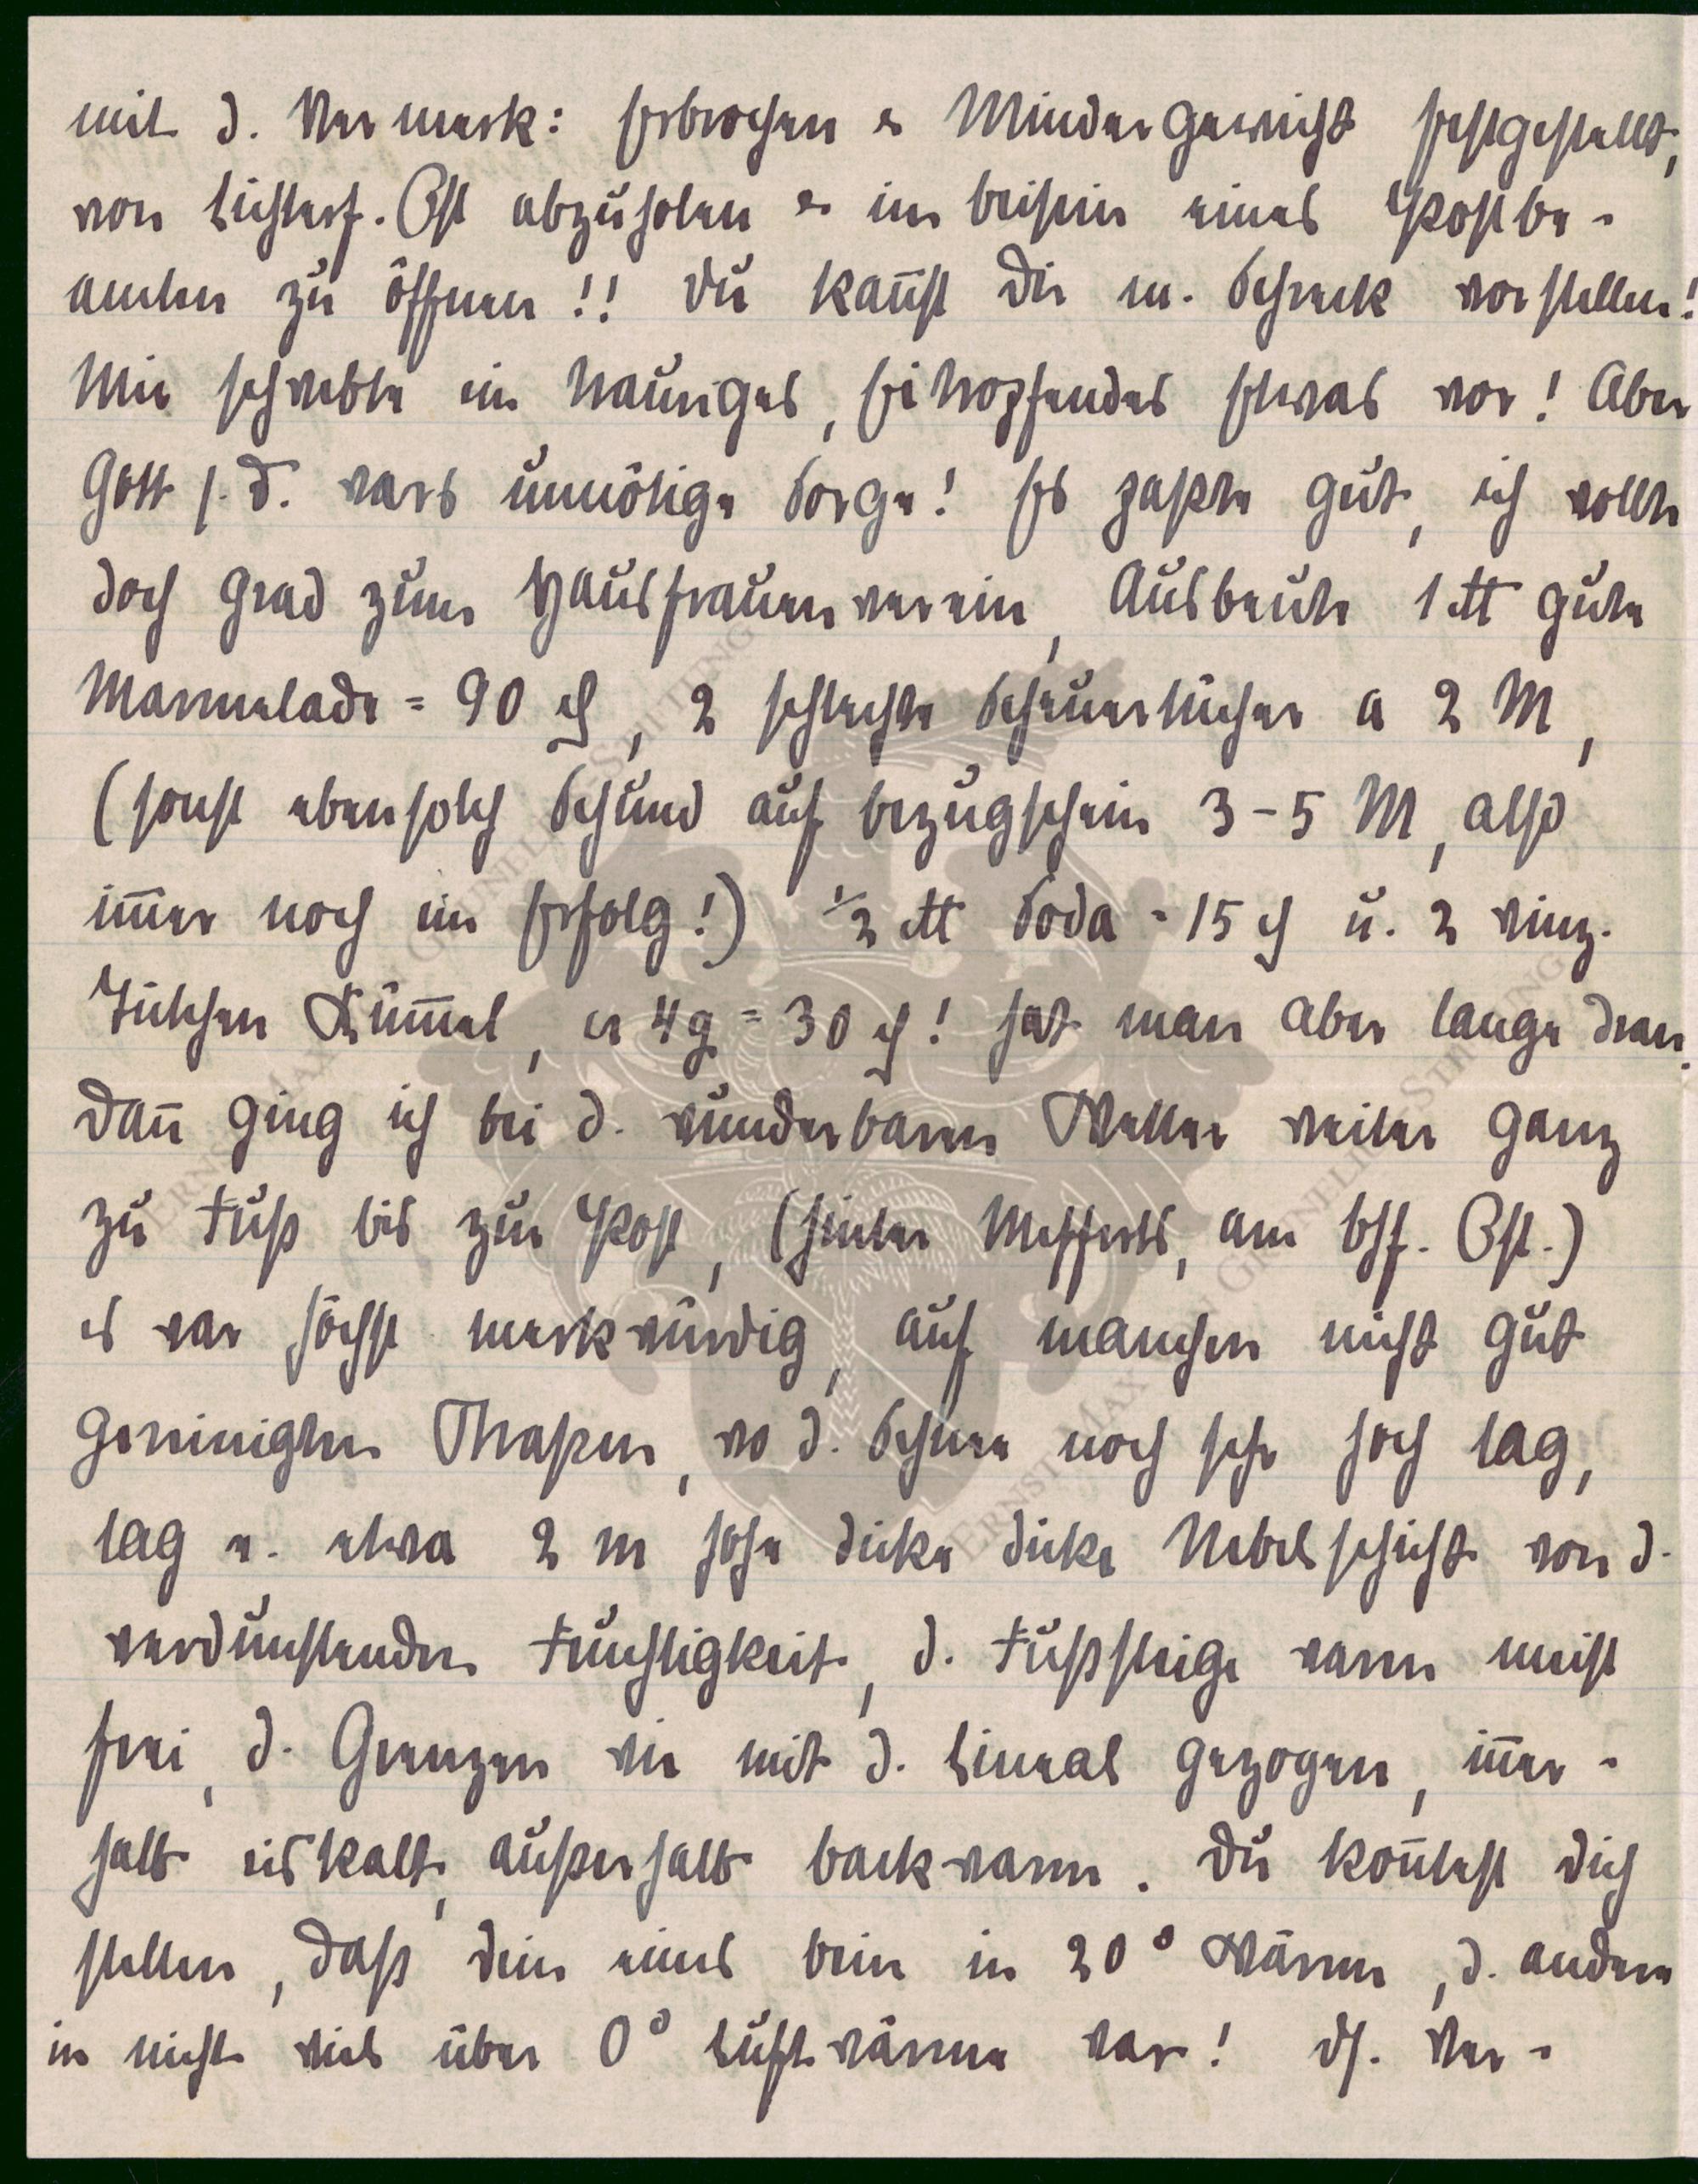 mit d. Vermerk: Erbrochen & Mindergewicht festgestellt,
von Lichterf. Ost abzuholen & im Beisein eines Postbe-
amten zu öffnen!! Du kan̄st Dir m. Schreck vorstellen!
Mir schwebte ein trauriges, Ei tropfendes Etwas vor! Aber
Gott s. D. wars unnötige Sorge! Es paßte gut, ich wollte
doch grad zum Hausfrauenverein, Ausbeute 1 ℔ gute
Marmelade = 90 ₰, 2 schlechte Scheuertücher a 2 M,
(sonst ebensolch Schund auf Bezugschein 3-5 M, also
im̄er noch ein Erfolg!) ½ ℔ Soda = 15 ₰ u. 2 winz.
Tütchen Küm̄el, a 4g = 30 ₰! hat man aber lange dran.
Dan̄ ging ich bei d. wunderbaren Wetter weiter ganz
zu Fuß bis zur Post, (hinter Mefferts, am Bhf. Ost.)
es war höchst merkwürdig, auf manchen nicht gut
gereinigten Straßen, wo d. Schnee noch sehr hoch lag,
lag e. etwa 2 m hohe dicke dicke Nebelschicht von d.
verdunstenden Feuchtigkeit, d. Fußsteige waren meist
frei, d. Grenzen wie mit d. Lineal gezogen, inner-
halb eiskalt, außerhalb backwarm. Du kon̄test dich
stellen, daß dein eines Bein in 20° Wärme, d. andere
in nicht viel über 0° Luftwärme war! Ds. Ver-
ERNST MAX VON GRUNELIUS-STIFTUNG
ERNST MAX VON GRUNELIUS-STIFTUNG